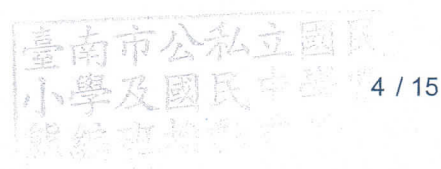 臺南市公私立國民
小學及國民中學
4 / 15